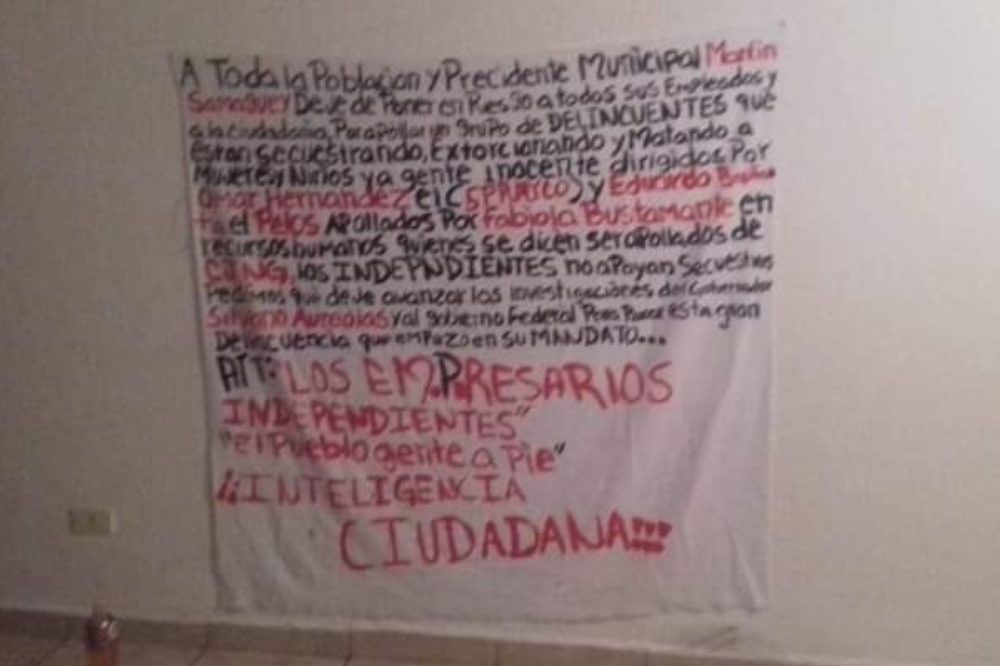 A Toda la Poblacion y Precidente Municipal Martin
Samaguey Deje de Poner en Riesgo a todos sus Empleados y
a la ciudadania Para apollar un grupo de DELINCUENTES que
estan secuestrando, Extorcionando y Matando a
Mujeres y Niños y a gente inocente dirigidos Por
Omar Hernandez el (SPARTCO) y Eduardo
el Pelos Apollados Por Fabiola Bustamante en
recursos humanos quienes se dicen ser apollados de
CJNG, los INDEPNDIENTES no apoyan Secuestros
Pedimos que deje avanzar las investigaciones del Gobernador
Silvano Aureolas y al gobierno Federal Para Parar esta gran
Delincuencia que emPezo en SU MANDATO...
ATT: LOS EM.P.RESARIOS
INDEPENDIENTES"
"el Pueblo gente a Pie"
¡¡INTELIGENCIA
CIUDADANA!!!